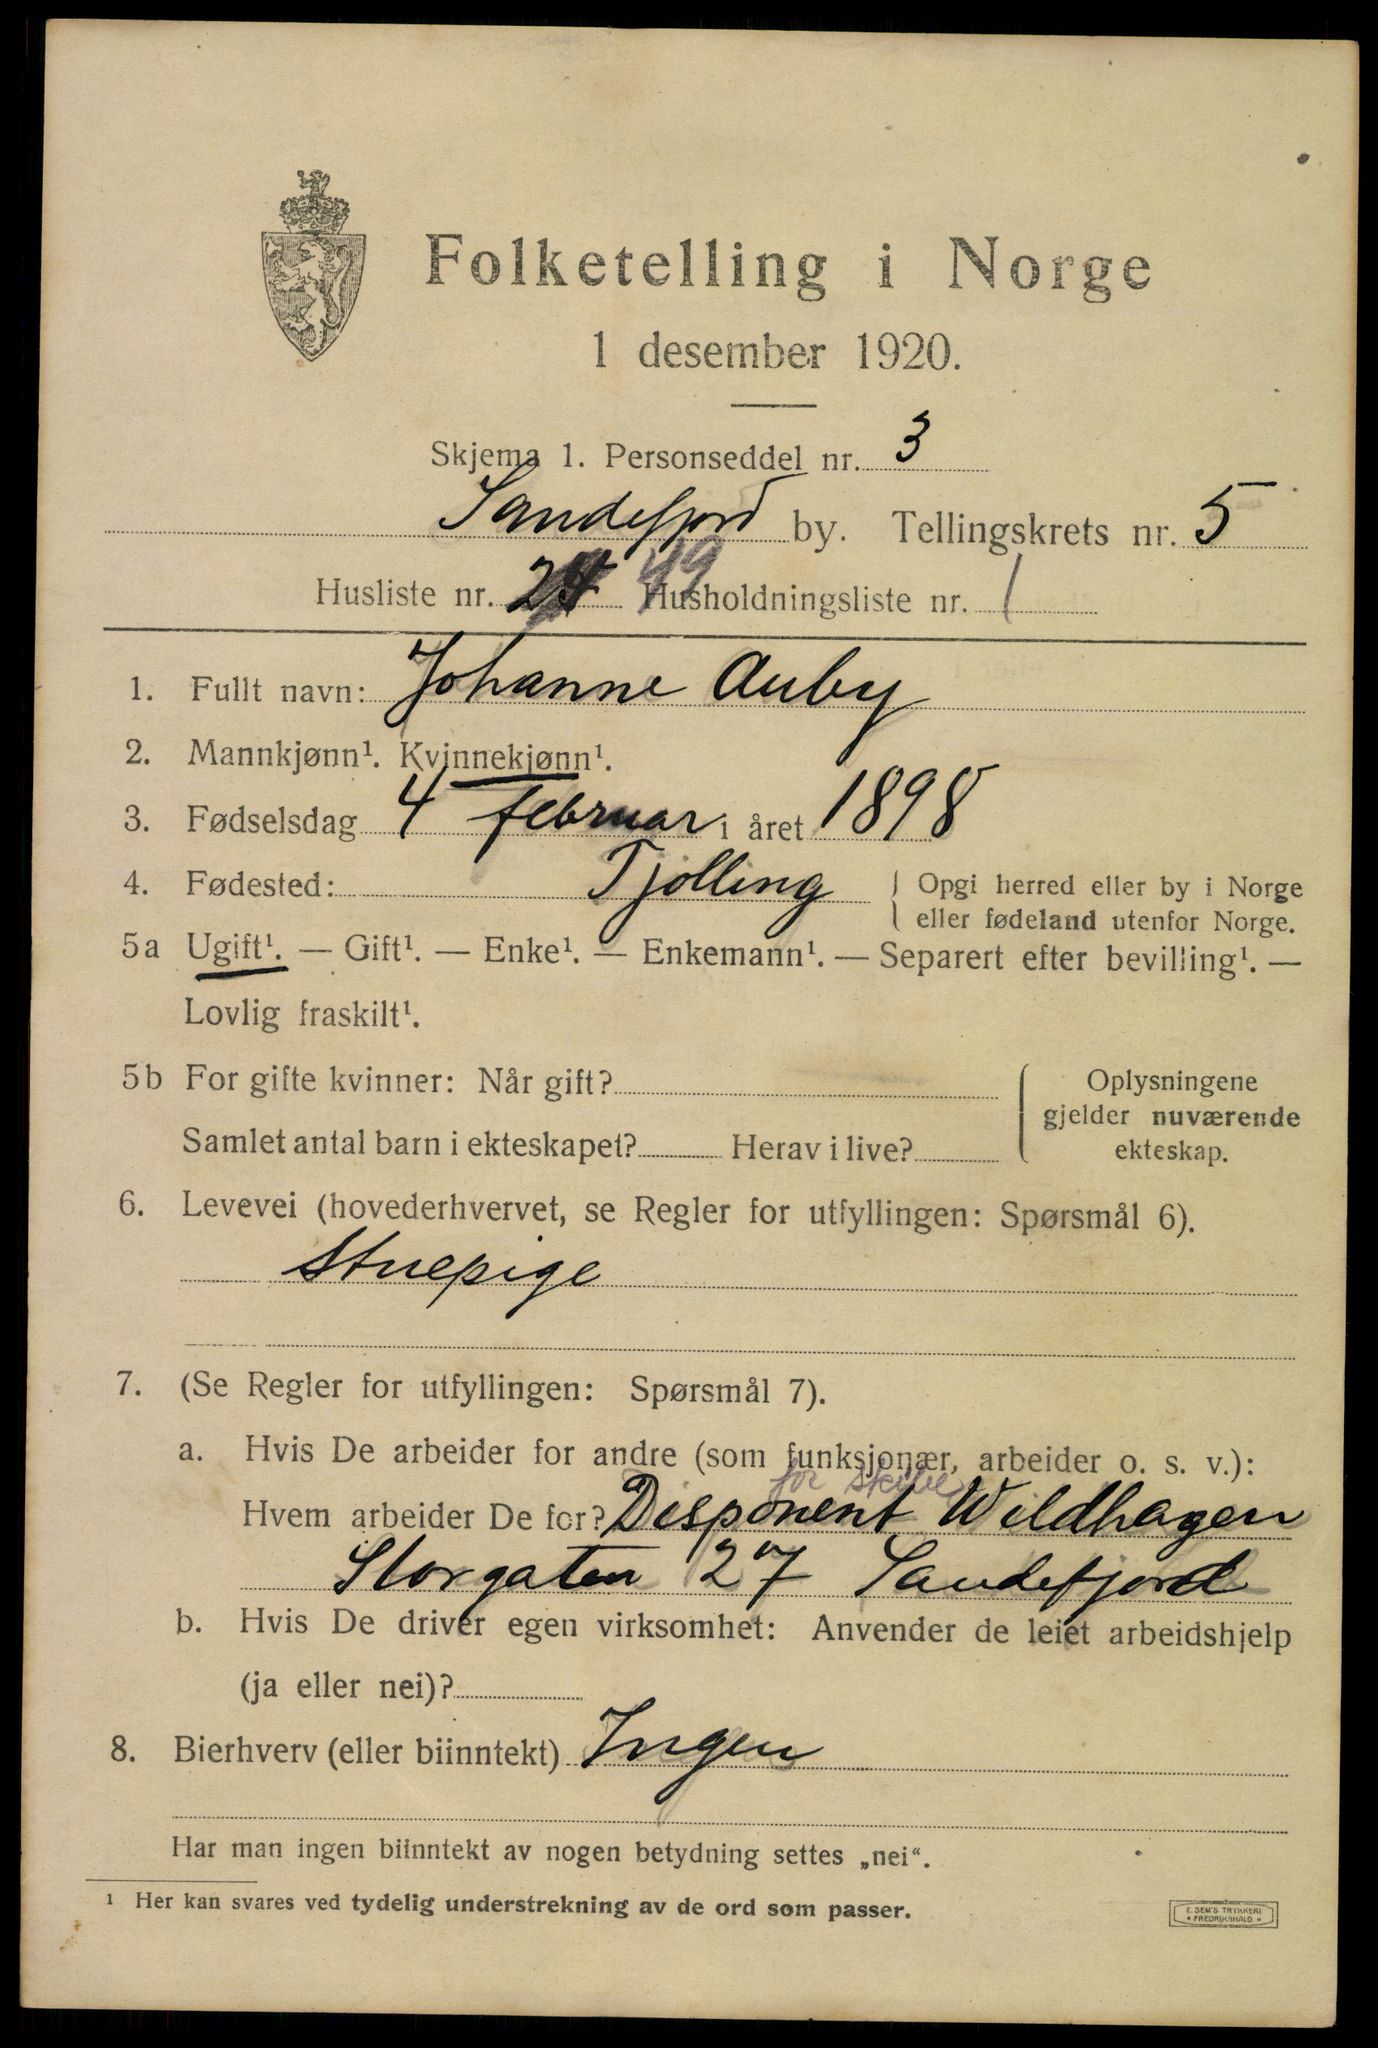 Folketelling i Norge
1 desember 1920.
Skjema 1. Personseddel nr. 3
Sandefjord by. Tellingskrets nr. 5
Husliste nr. 49 Husholdningsliste nr. 1
1. Fullt navn: Johanne Auby
2. Mannkjønn¹. Kvinnekjønn¹.
3. Fødselsdag 4 februar i året 1898
4. Fødested: Tjølling { Opgi herred eller by i Norge
eller fødeland utenfor Norge.
5a Ugift¹. — Gift¹. — Enke¹. — Enkemann¹. — Separert efter bevilling¹. —
Lovlig fraskilt¹.
5b For gifte kvinner: Når gift?
Samlet antal barn i ekteskapet? Herav i live?
{ Oplysningene
gjelder nuværende
ekteskap.
6. Levevei (hovederhvervet, se Regler for utfyllingen: Spørsmål 6).
Stuepige
7. (Se Regler for utfyllingen: Spørsmål 7).
a. Hvis De arbeider for andre (som funksjonær, arbeider o. s. v.):
for
Hvem arbeider De for? Disponent Wildhagen
Storgaten 27 Sandefjord
b. Hvis De driver egen virksomhet: Anvender de leiet arbeidshjelp
(ja eller nei)?
8. Bierhverv (eller biinntekt) Ingen
Har man ingen biinntekt av nogen betydning settes „nei“.
¹ Her kan svares ved tydelig understrekning av de ord som passer.
E. SEM'S TRYKKERI
* FREDRIKSHALD *